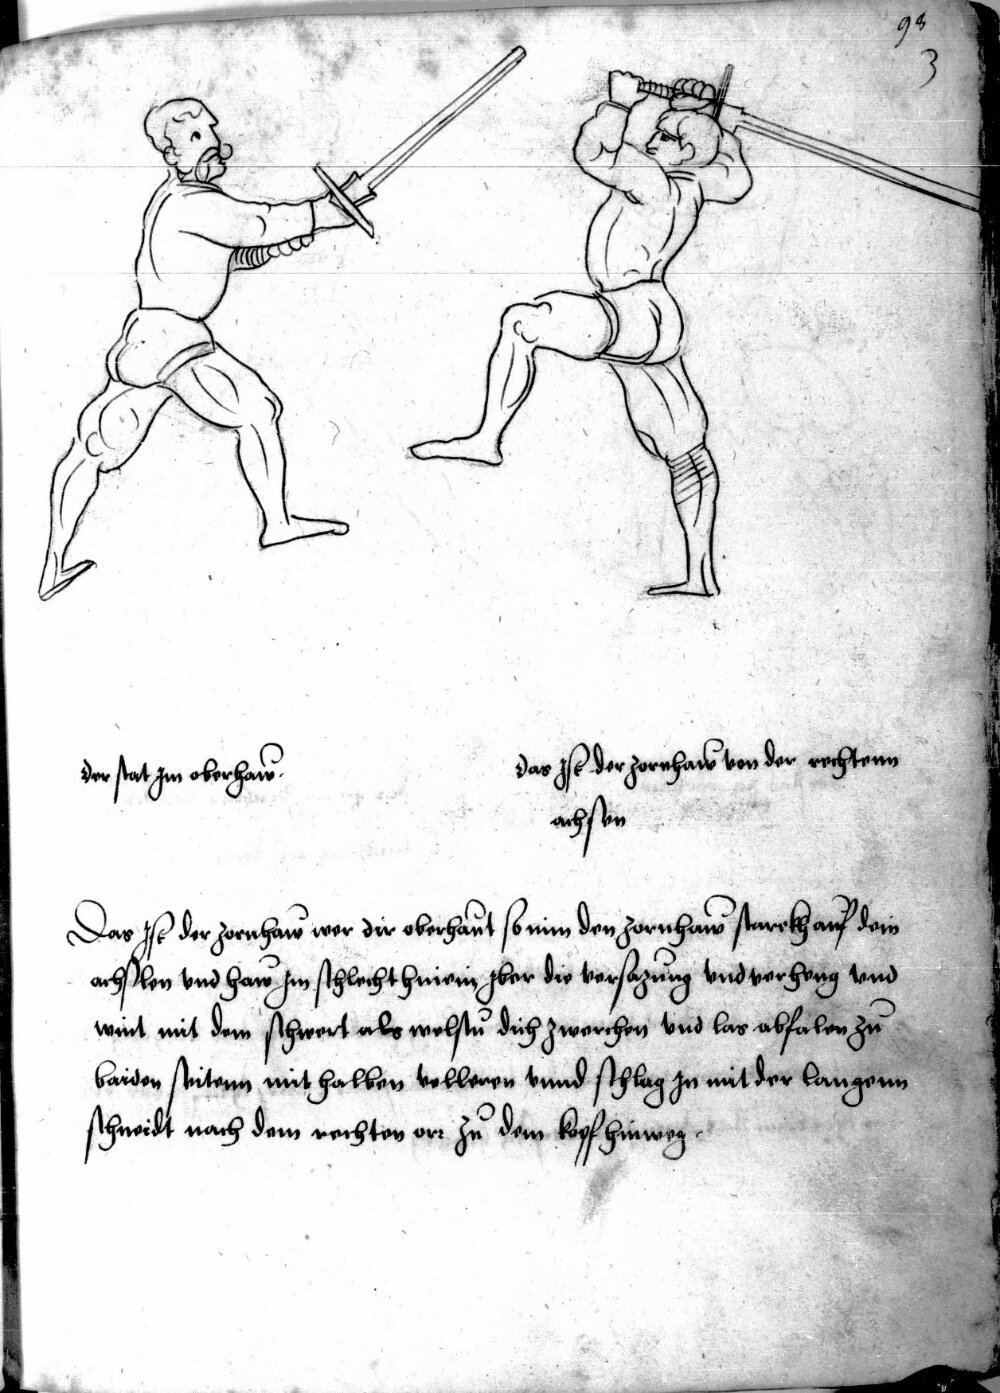 98
3
der stat Jm oberhaw.
das Jst der zornhaw von der rechtenn
achslen
Das Jst der zornhaw wer dir oberhaut so nim den zornhaw starckh auf dein
achslen vnd haw Jm schlecht hinein Jber die versazung vnd verheng vnd
wint mit dem schwert als welstu dich zwerchen vnd las abfalen zu
baiden seitenn mit halben velleren vnnd schlag Jn mit der langenn
schneidt nach dem rechten orr zu dem kopf hinweg.